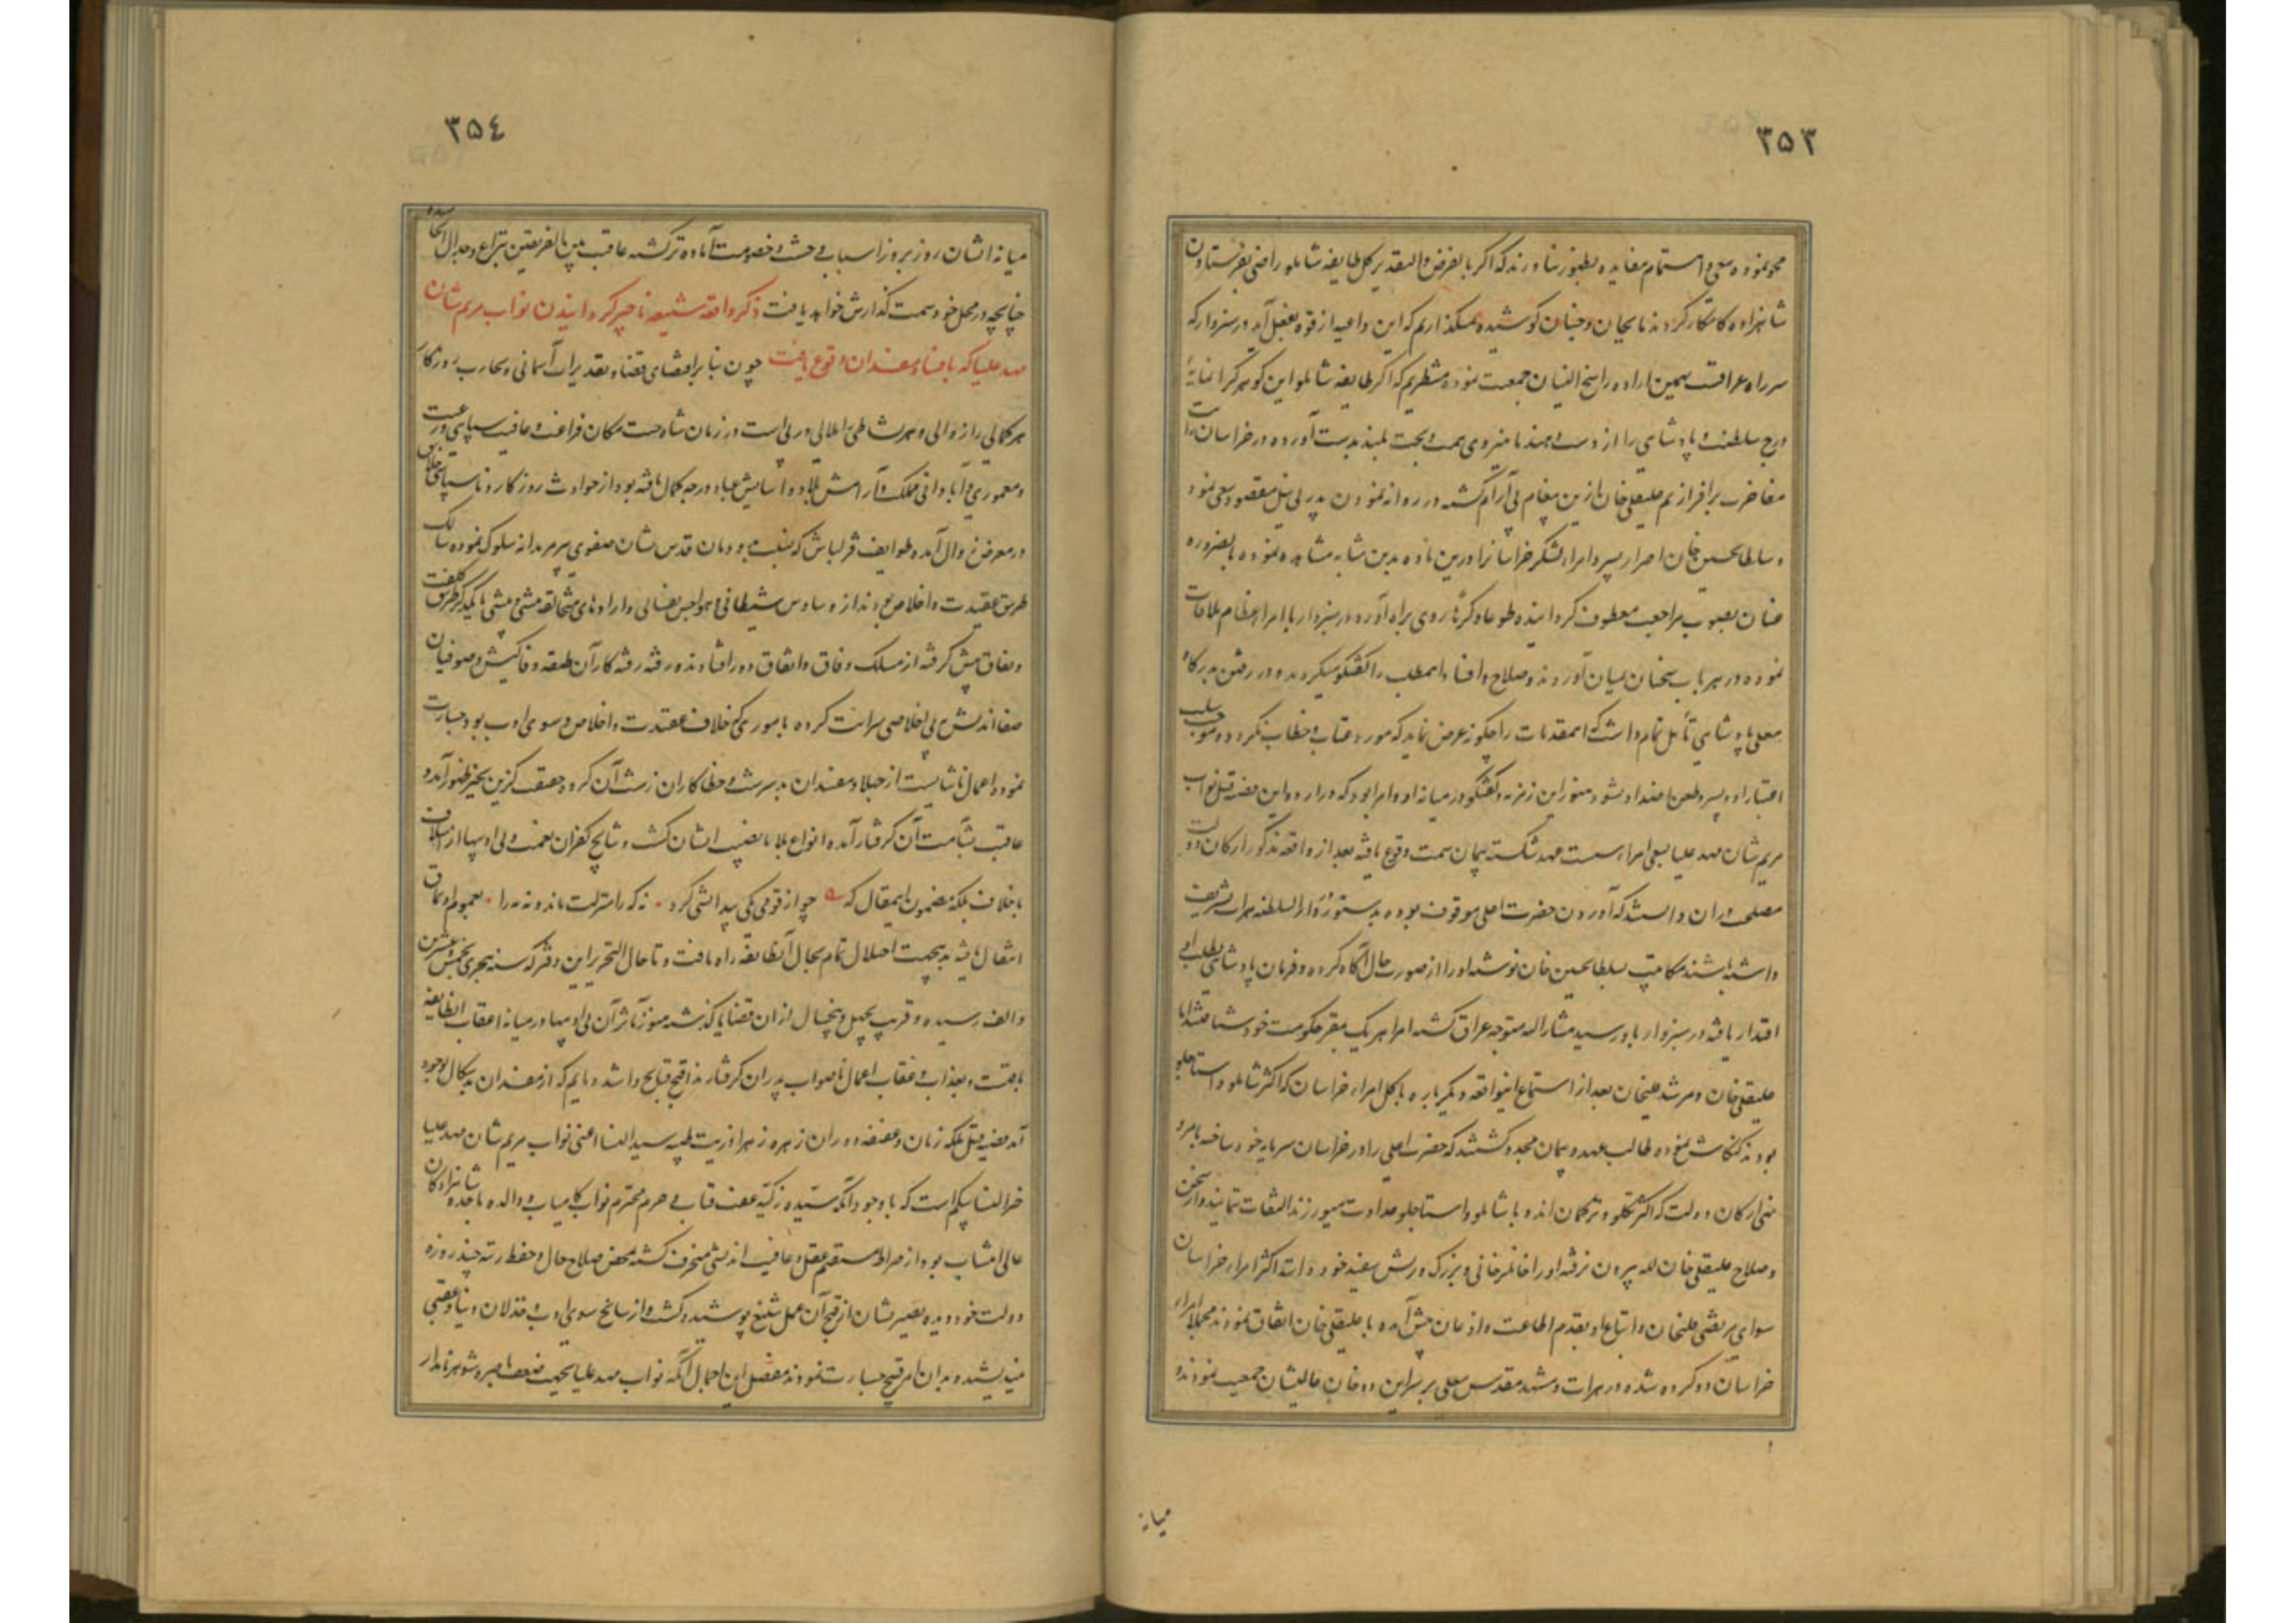 ۳۵۳
محو نموده سعی و اهتمام بظهور رسانند که اگر بالفرض و التقدیر کل طایفه شاملو راضی بفرستادن
شاهزاده کامکار گردند ما بجان و جنان کوشیده نمیگذاریم که این داعیه از قوه بفعل آید و در سبزوار که
سر راه عراقست بهمین اراده راسخ البنیان جمعیت نموده منتظریم که اگر طایفه شاملو این گوهر گرانمایهٔ
درج سلطنت و پادشاهی را از دست دهند ما به نیروی همت و بخت بلند بدست آورده در خراسان رایت
مفاخرت برافرازیم علیقلی خان ازین پیغام بی آرام گشته در روانه نمودن پدر بی نیل مقصود سعی نمود
و سلطان حسین خان اصرار پسر و امراء لشکر خراسان را درین ماده بدین مشابه مشاهده نموده بالضروره
عنان بصوب مراجعت معطوف گردانیده طوعا و کرها روی براه آورده در سبزوار با امراء عظام ملاقات
نموده در هر باب سخنان بمیان آوردند و صلاح و افساد اینمطلب را گفتگو میکردند و در رفتن بدرگاه
معلی پادشاهی تأمل تمام داشت که این مقدمات را چگونه عرض نماید که مورد عتاب و خطاب نگردد و موجب سلب
اعتبار او و پسر و طعن اضداد نشود هنوز این زمزمه و گفتگو در میانه او و امرا بود که در اردو این قضیه قتل نواب
مریم شان مهد علیا بسعی امراء سست عهد شکسته پیمان سمت وقوع یافته بعد از واقعه مذکور ارکان دولت
مصلحت در آن دانستند که آوردن حضرت اعلی موقوف بوده بدستور دارالسلطنه هرات تشریف
داشته باشند مکاتیب بسلطان حسین خان نوشته او را از صورت حال آگاه کرده و فرمان پادشاهی بطلب او
اقتدار یافته در سبزوار باو رسید مشارالیه متوجه عراق گشته امرا هر یک بمقر حکومت خود شتافتند اما
علیقلی خان و مرشد قلیخان بعد از استماع اینواقعه دیگرباره با کل امراء خراسان که اکثر شاملو و استاجلو
بودند کنکاش نموده طالب عهد و پیمان مجدد گشتند که حضرت اعلی را در خراسان سرمایه خود ساخته بامر و
نهی ارکان دولت که اکثر تکلو و ترکمان اند و با شاملو و استاجلو عداوت میورزند التفات ننمایند و از سخن
و صلاح علیقلی خان لله بیرون نرفته او را خانلر خانی و بزرگ و ریش سفید خود دانند اکثر امراء خراسان
سوای مرتضی قلیخان و اتباع او بقدم اطاعت و اذعان پیش آمده با علیقلی خان اتفاق نمودند مجملا امراء
خراسان دو گروه شده در هرات و مشهد مقدس معلی بر سر این دو خان عالیشان جمعیت نمودند و
میانه
۳۵٤
میانه ایشان روز بروز اسباب وحشت و خصومت آماده تر گشته عاقبت بین الفریقین بنزاع و جدال انجامیده
چنانچه در محل خود سمت گذارش خواهد یافت ذکر واقعه شنیعه ناچیز گردانیدن نواب مریم شان
مهد علیا که بافساد مفسدان وقوع یافت چون بنا بر اقتضای قضاء و تقدیرات آسمانی و تجارب روزگار
هر کمالی را زوالی و هر نشاطی را ملالی در پی است در زمان شاه جنت مکان فراغت و عافیت سپاهی و رعیت
و معموری و آبادانی ملک و آرامش بلاد و آسایش عباد درجه کمال یافته بود از حوادث روزگار و ناسپاسی خلایق
در معرض زوال آمده طوایف قزلباش که بدودمان قدس شان صفوی پیر مریدانه سلوک نموده سالک
طریق عقیدت و اخلاص بودند از وساوس شیطانی و هواجس نفسانی و ارادهای متخالفه با یکدیگر طریق کلفت
و نفاق پیش گرفته از مسلک وفاق و اتفاق دور افتادند و رفته رفته کار آن طبقه وفاکیش و صوفیان
صفا اندیش به بی اخلاصی سرایت کرده باموری که خلاف عقیدت و اخلاص و سوی ادب بود جسارت
نموده اعمال ناشایست از جهلا و مفسدان بدسرشت و خطاکاران زشت آن گروه بحیز ظهور آمده
عاقبت بشآمت آن گرفتار آمده انواع بلا نصیب ایشان گشت و نتایج کفران نعمت و بی ادبیها از اسلاف
باخلاف بلکه بمضمون اینمقال که چو از قومی یکی بیدانشی کرد نه که را منزلت ماند نه مه را بعموم اویماق
انتقال یافته بدینجهت اختلال تمام بحال آنطایفه راه یافت و تا حال التحریر این دفتر که سنه هجری بخمس و عشرین
و الف رسیده و قریب بچهل و پنجسال از آن قضایا گذشته هنوز آثار آن بی ادبیها در میانه اعقاب آنطایفه
باقیست و بعذاب و عقاب اعمال ناصواب پدران گرفتارند اقبح قبایح و اشد ذمایم که از مفسدان بدسگال بوجود
آمد قضیه قتل ملکه زمان و عفیفه دوران زهره زهرا ذریت طیبه سیدالنسا اعنی نواب مریم شان مهد علیا
خیرالنسا بیکم است که با وجود آنکه سیده زکیه عفت قباب و حرم محترم نواب کامیاب و والده ماجده شاهزادگان
عالی انتساب بود از صراط مستقیم عقل و عافیت اندیشی منحرف گشته محض صلاح حال و حفظ رتبه چند روزه
دولت خود دیده بصیرتشان از قبح آن عمل شنیع پوشیده گشت و از سانح سوی ادب و خذلان دنیا و عقبی
نیندیشیده بدان امر قبیح جسارت نمودند مفصل این اجمال آنکه نواب مهد علیا بجهت ضعف باصره شوهر نامدار